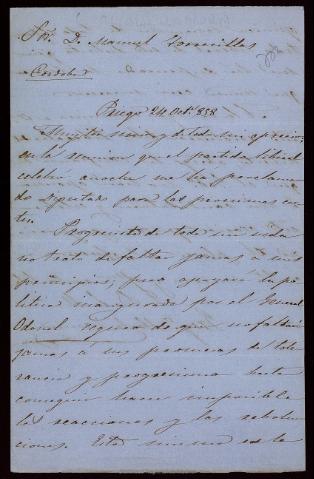 Sor. D. Manuel Torrecillas
Cordoba
Priego 24 Oct. 858
Muy Sor. mio y de todo mi aprecio:
en la reunion que el partido liberal
celebró anoche me ha proclama-
do Diputado para las proximas cor-
tes.
Progresista de toda mi vida
no trato de faltar jamas á mis
principios, pero apoyaré la po-
litica inaugurada por el General
Odonell seguro de que no faltará
jamas á sus promesas de tole-
rancia y progresismo hasta
conseguir hacer imposible
las reacciones y las revolu-
ciones. Esta misma es la